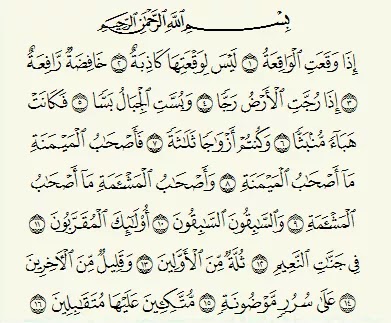 بِسْمِ ٱللَّهِ ٱلرَّحْمَٰنِ ٱلرَّحِيمِ
إِذَا وَقَعَتِ ٱلْوَاقِعَةُ ١ لَيْسَ لِوَقْعَتِهَا كَاذِبَةٌ ٢ خَافِضَةٌ رَّافِعَةٌ
٣ إِذَا رُجَّتِ ٱلْأَرْضُ رَجًّا ٤ وَبُسَّتِ ٱلْجِبَالُ بَسًّا ٥ فَكَانَتْ
هَبَآءً مُّنۢبَثًّا ٦ وَكُنتُمْ أَزْوَٰجًا ثَلَٰثَةً ٧ فَأَصْحَٰبُ ٱلْمَيْمَنَةِ
مَآ أَصْحَٰبُ ٱلْمَيْمَنَةِ ٨ وَأَصْحَٰبُ ٱلْمَشْـَٔمَةِ مَآ أَصْحَٰبُ
ٱلْمَشْـَٔمَةِ ٩ وَٱلسَّٰبِقُونَ ٱلسَّٰبِقُونَ ١٠ أُو۟لَٰٓئِكَ ٱلْمُقَرَّبُونَ ١١
فِى جَنَّٰتِ ٱلنَّعِيمِ ١٢ ثُلَّةٌ مِّنَ ٱلْأَوَّلِينَ ١٣ وَقَلِيلٌ مِّنَ ٱلْـَٔاخِرِينَ
١٤ عَلَىٰ سُرُرٍ مَّوْضُونَةٍ ١٥ مُّتَّكِـِٔينَ عَلَيْهَا مُتَقَٰبِلِينَ ١٦